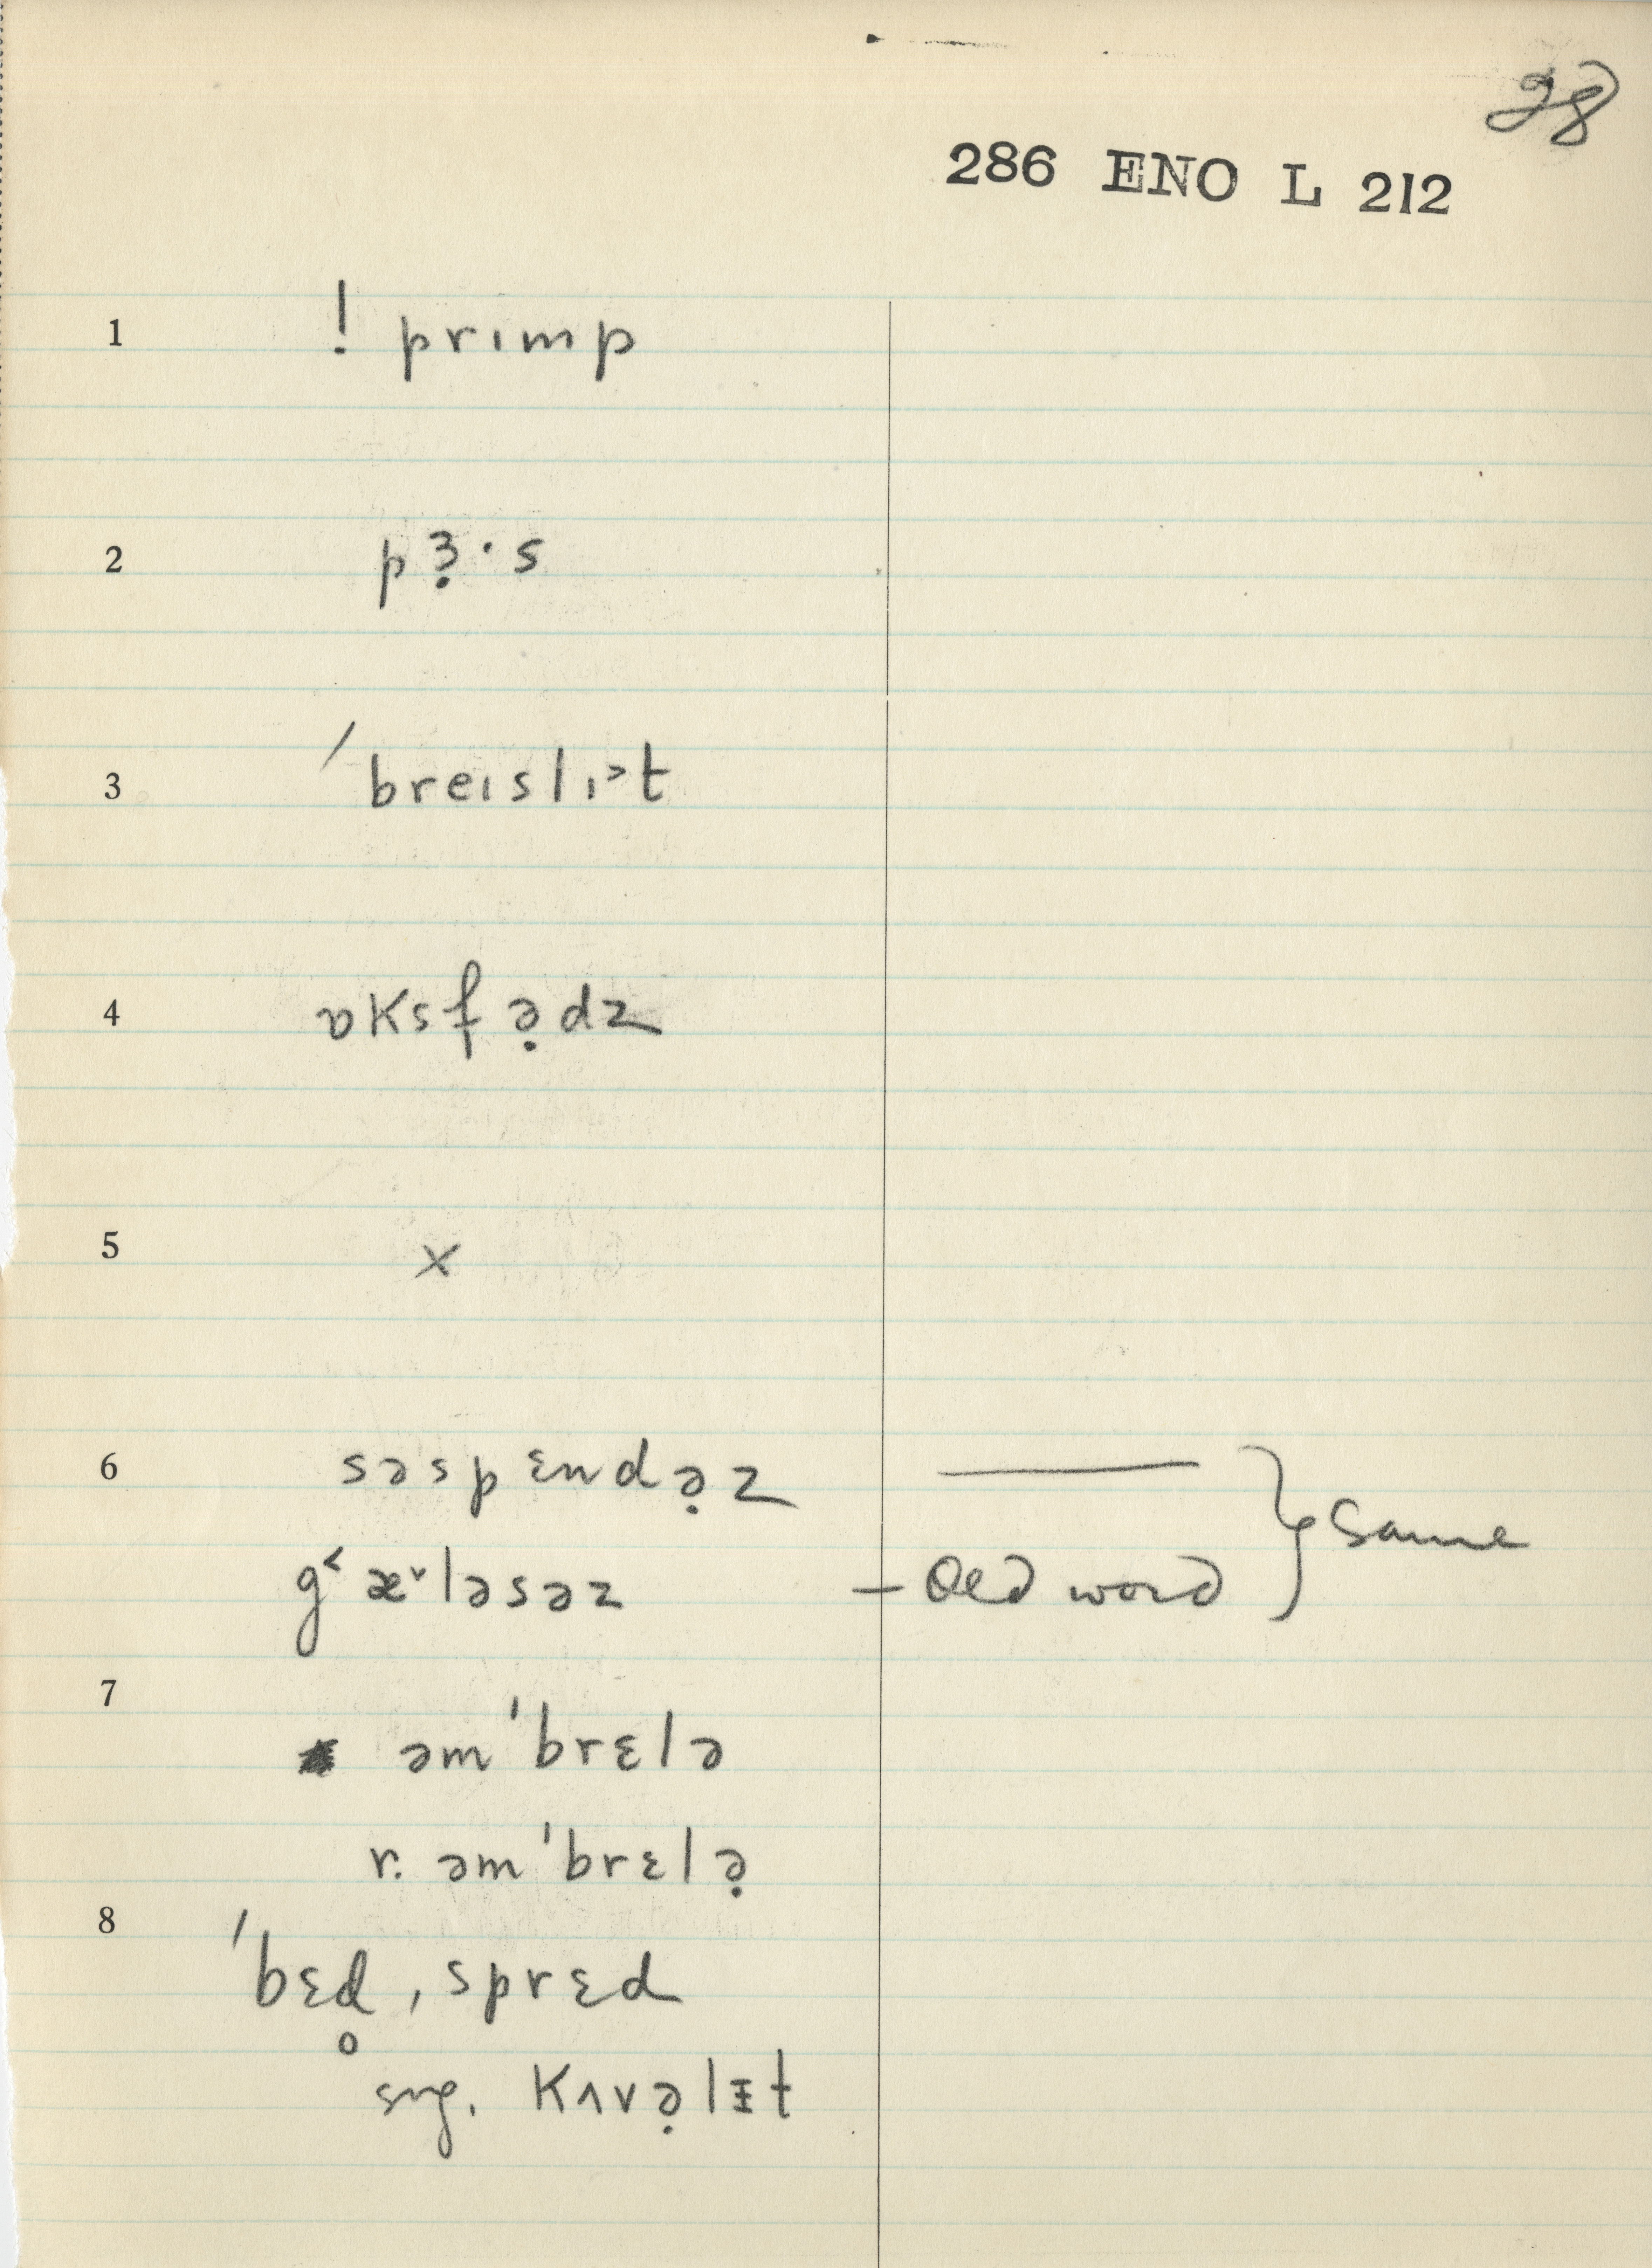 28
286 ENO L 212
1 ! prɪmp
2 pɜ̣·s
3 ′breɪslɪ˃t
4 ɒksfə̣dz
5 x
6 səspɛndə̣z —— } same
g˂æ˅ləsəz – Old word
7 əm'brɛlə
r. əm'brɛlə̣
8 'bɛd̥ ˌsprɛd
sug. kʌvə̣lɪt